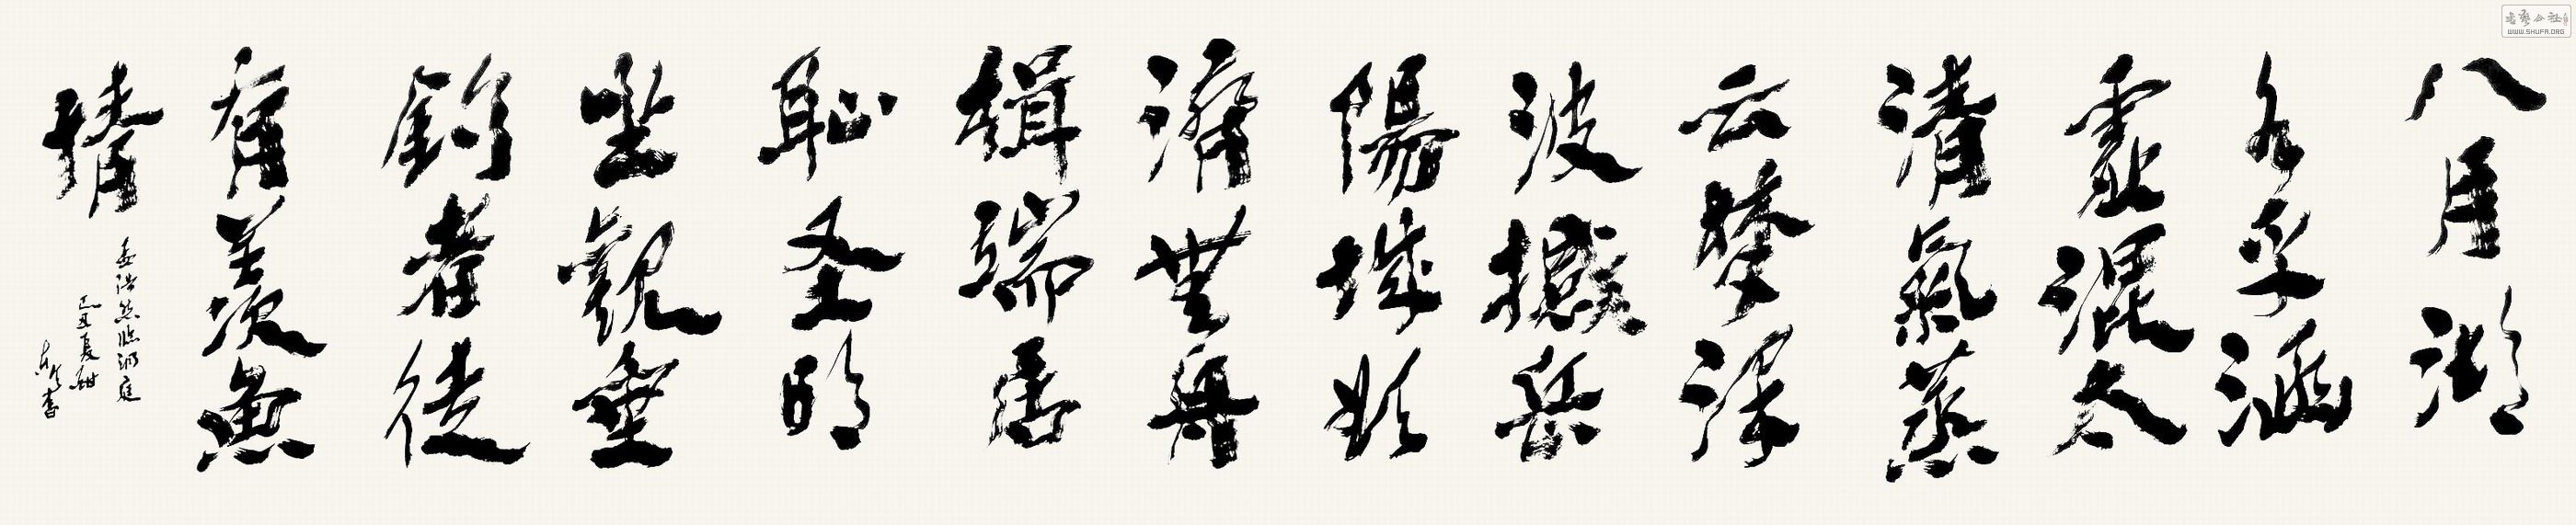 八月湖
水平涵
虚混太
清氣蒸
云夢泽
波撼岳
陽城欲
濟無舟
楫端居
恥圣明
坐觀垂
釣者徒
有羡魚
情
孟浩然临洞庭
己丑夏
書
书艺公社
WWW.SHUFA.ORG